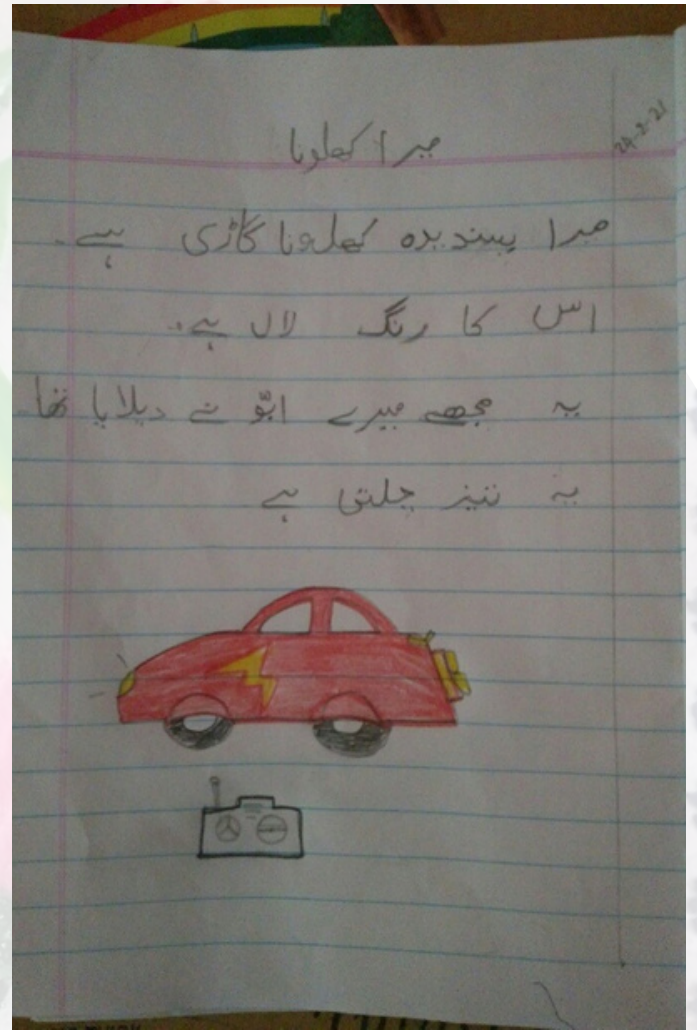 24-2-21
میرا کھلونا
میرا پسندیدہ کھلونا گاڑی ہے۔
اس کا رنگ لال ہے۔
یہ مجھے میرے ابّو نے دیلایا تھا۔
یہ تیز چلتی ہے